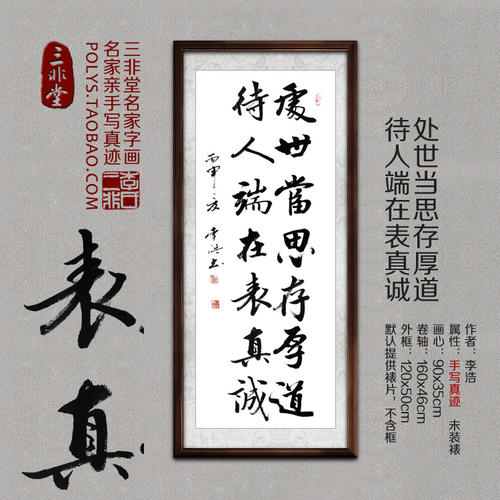 处世当思存厚道
待人端在表真诚
作者：李浩
属性：手写真迹 未装裱
画心：90x35cm
卷轴：160x46cm
外框：120x50cm
默认提供裱片，不含框
處世當思存厚道
待人端在表真誠
丙申之夏 李浩书
三非堂名家字画
名家亲手写真迹
POLYS.TAOBAO.COM
三非堂
表真